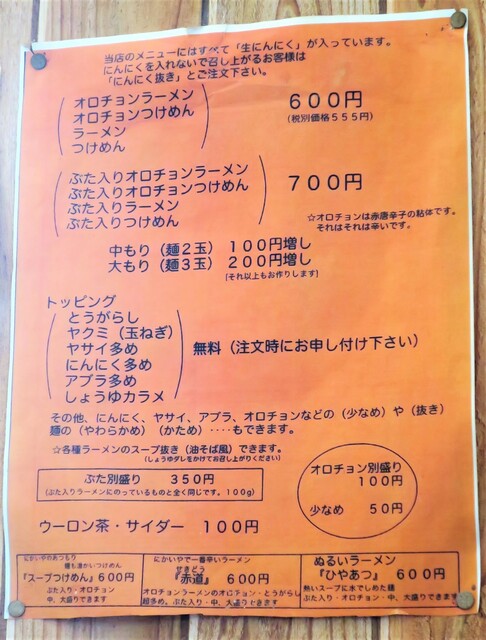 当店のメニューにはすべて「生にんにく」が入っています。
にんにくを入れないで召し上がるお客様は
「にんにく抜き」とご注文下さい。
オロチョンラーメン
オロチョンつけめん
ラーメン
つけめん
600円
(税別価格555円)
ぶた入りオロチョンラーメン
ぶた入りオロチョンつけめん
ぶた入りラーメン
ぶた入りつけめん
700円
☆オロチョンは赤唐辛子の粘体です。
それはそれは辛いです。
中もり(麺2玉) 100円増し
大もり(麺3玉) 200円増し
(それ以上もお作りします)
トッピング
とうがらし
ヤクミ(玉ねぎ)
ヤサイ多め
にんにく多め
アブラ多め
しょうゆカラメ
無料(注文時にお申し付け下さい)
その他、にんにく、ヤサイ、アブラ、オロチョンなどの(少なめ)や(抜き)
麺の(やわらかめ)(かため)‥‥もできます。
☆各種ラーメンのスープ抜き(油そば風)できます。
(しょうゆダレをかけてお召し上がりください)
ぶた別盛り 350円
(ぶた入りラーメンにのっているものと全く同じです。100g)
オロチョン別盛り
100円
少なめ 50円
ウーロン茶・サイダー 100円
にかいやのあつもり
麺も温かいつけめん
『スープつけめん』600円
ぶた入り・オロチョン
中、大盛りできます
にかいやで一番辛いラーメン
せきどう
『赤道』 600円
オロチョンラーメンのオロチョン・とうがらし
超多め、ぶた入り・中、大盛りできます
ぬるいラーメン
『ひやあつ』 600円
熱いスープに水でしめた麺
ぶた入り・オロチョン・中、大盛りできます